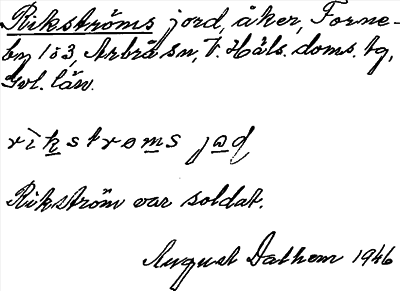 Rikströms jord, åker, Forne-
by 1o3, Arbrå sn, V. Häls. doms. tg,
Gvl. län.
rikstroms jod
Rikström var soldat.
August Dathem 1946